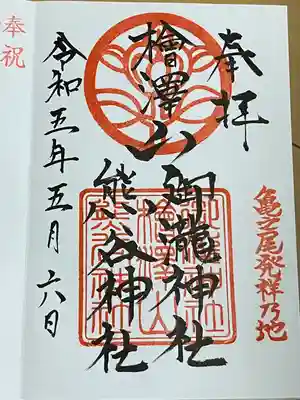 奉拝
亀之尾発祥乃地
檜澤山御瀧神社
熊谷神社
令和五年五月六日
奉祝